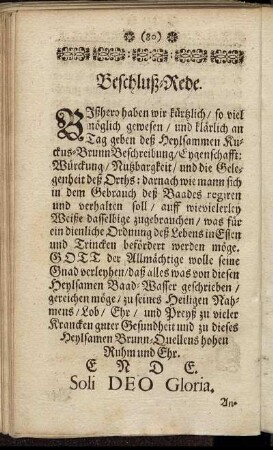 (80)
Beschluß-Rede.
BIßhero haben wir kürtzlich/ so viel
möglich gewesen/ und klärlich an
Tag geben deß Heylsammen Ku-
ckus-Brunn Beschreibung/ Eygenschafft:
Würckung/ Nutzbargkeit/ und die Gele-
genheit deß Orths: darnach wie mann sich
in dem Gebrauch deß Baades regiren
und verhalten soll/ auff wievielerley
Weiße dasselbige zugebrauchen/ was für
ein dienliche Ordnung deß Lebens in Essen
und Trincken befördert werden möge.
GOTT der Allmächtige wolle seine
Gnad verleyhen/ daß alles was von diesen
Heylsamen Baad-Wasser geschrieben/
gereichen möge/ zu seines Heiligen Nah-
mens/ Lob/ Ehr/ und Preyß zu vieler
Krancken guter Gesundheit und zu dieses
Heylsamen Brunn-Quellens hohen
Ruhm und Ehr.
E N D E.
Soli DEO Gloria.
An-